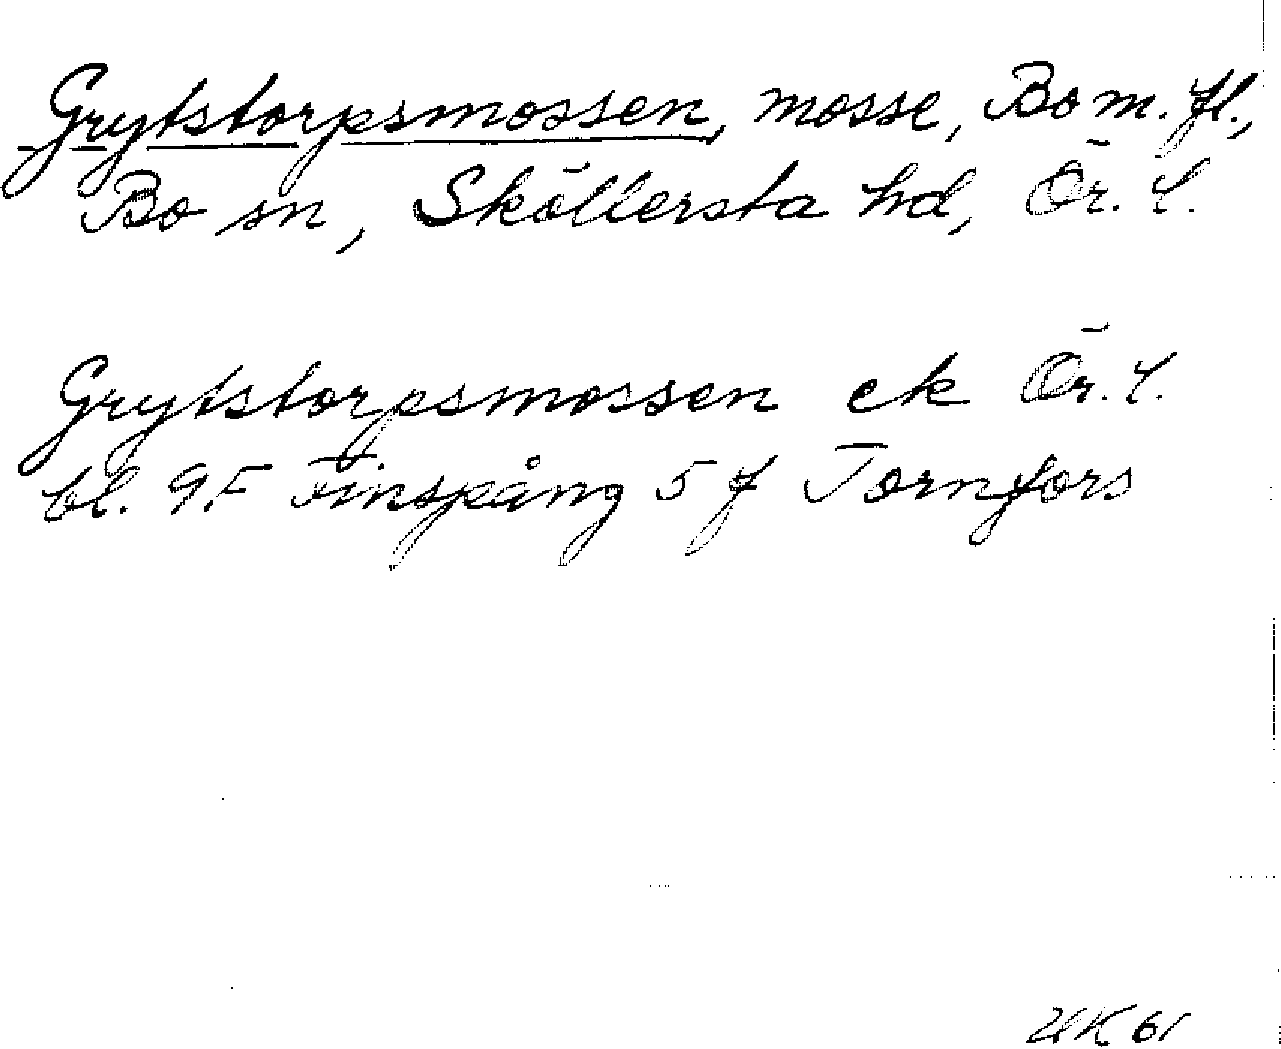 Grytstorpsmossen, mosse, Bo m. fl.,
Bo sn, Sköllersta hd, Ör. l.
Grytstorpsmossen ek Ör. l.
bl. 9F Finspång 5 f Tornfors